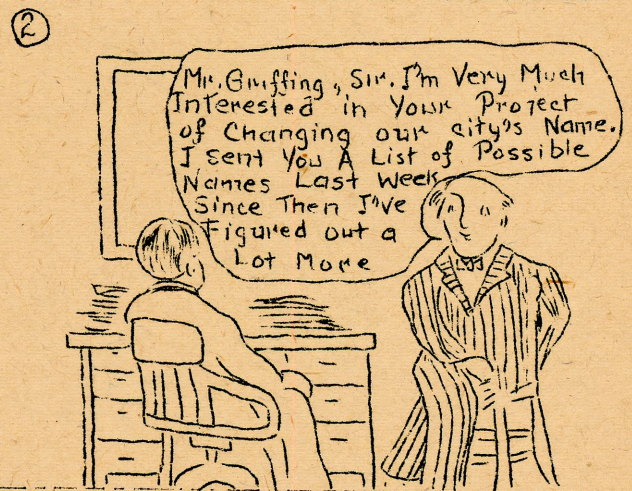 2
Mr. Griffing, Sir. I'm Very Much
Interested in Your Project
of Changing our city's Name.
I sent You A List of Possible
Names Last Week
Since Then I've
Figured out a
Lot More